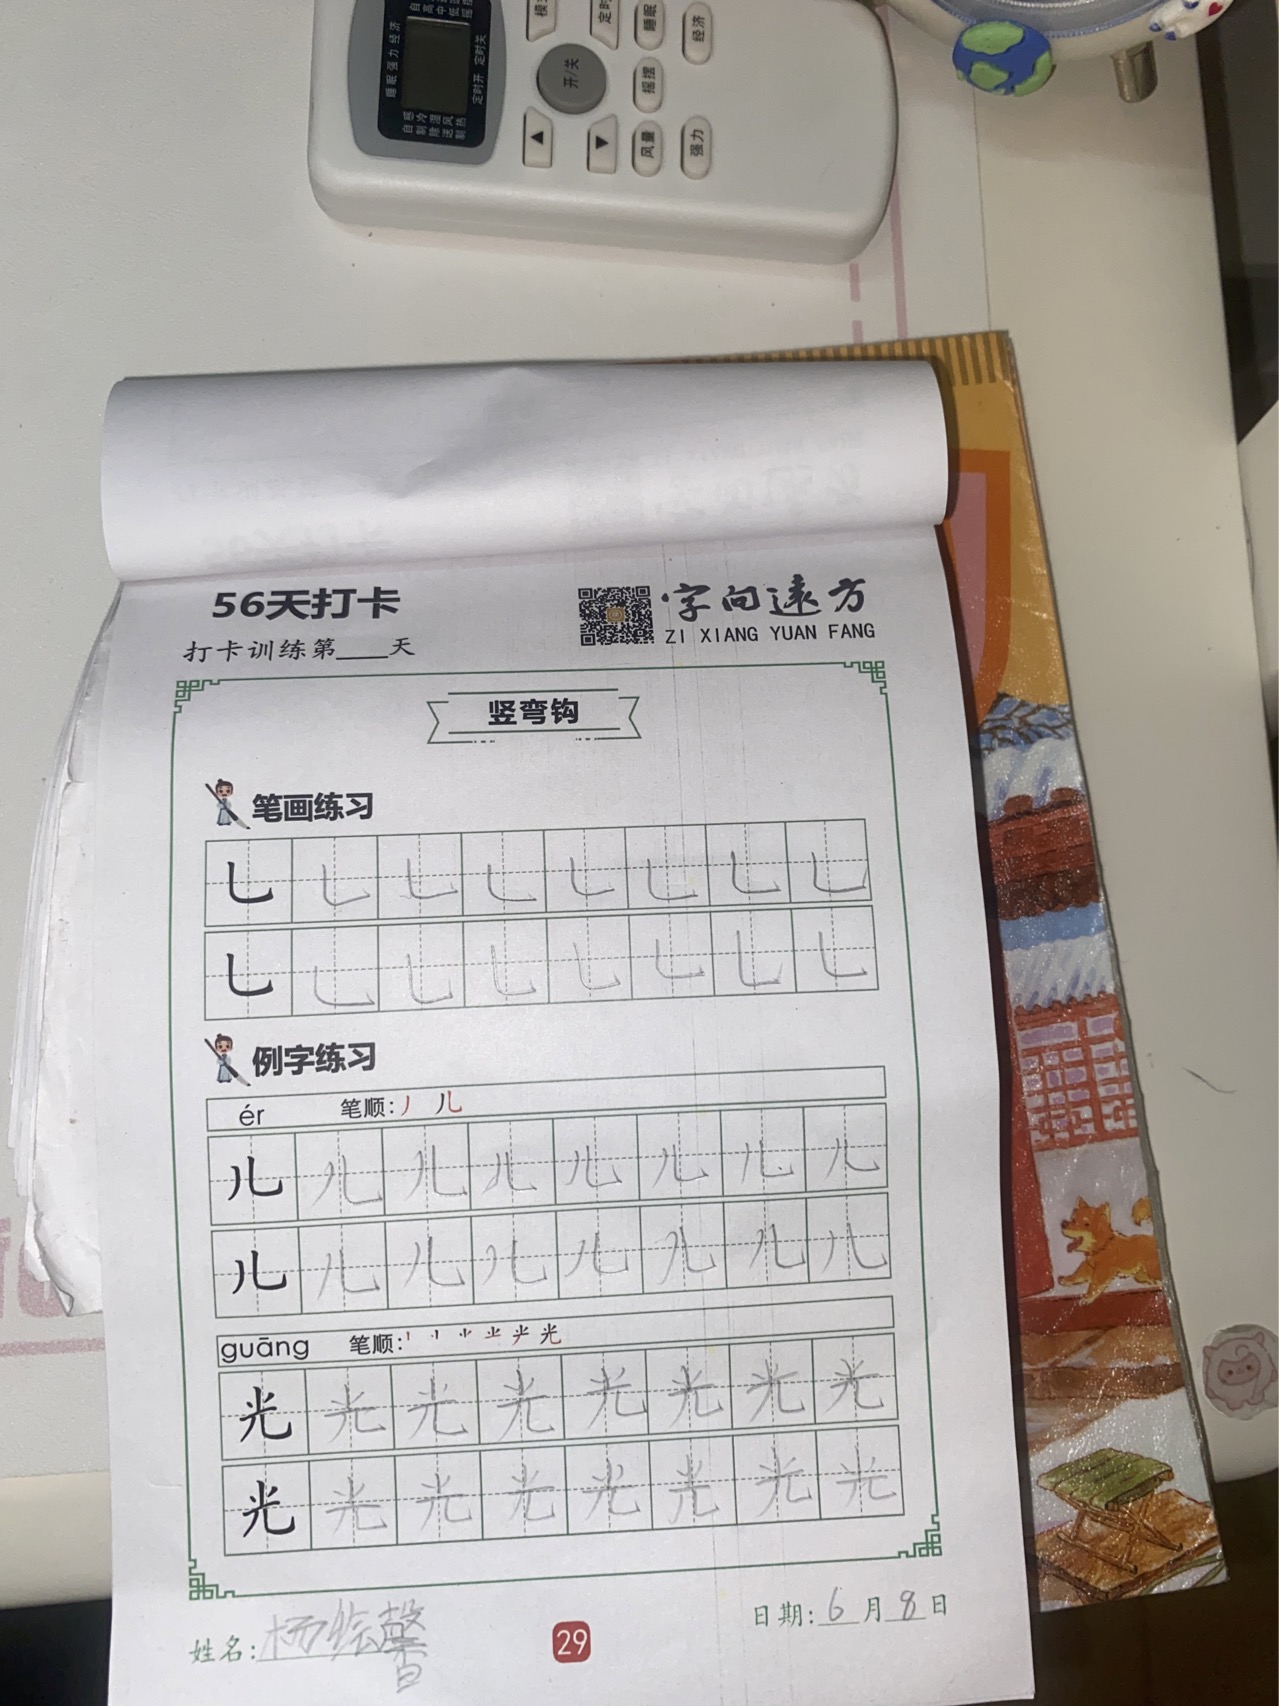 睡眠 强力 经济
定时开 定时关
自感
制冷
除湿
送风
制热
开/关
▲
▼
睡眠
摇摆
风量
经济
强力
56天打卡
打卡训练第____天
字向遠方
ZI XIANG YUAN FANG
竖弯钩
笔画练习
乚 乚 乚 乚 乚 乚 乚 乚
乚 乚 乚 乚 乚 乚 乚 乚
例字练习
ér 笔顺:丿 儿
儿 儿 儿 儿 儿 儿 儿 儿
儿 儿 儿 儿 儿 儿 儿 儿
guāng 笔顺:
光 光 光 光 光 光 光 光
光 光 光 光 光 光 光 光
姓名:杨绘馨
29
日期:6月8日